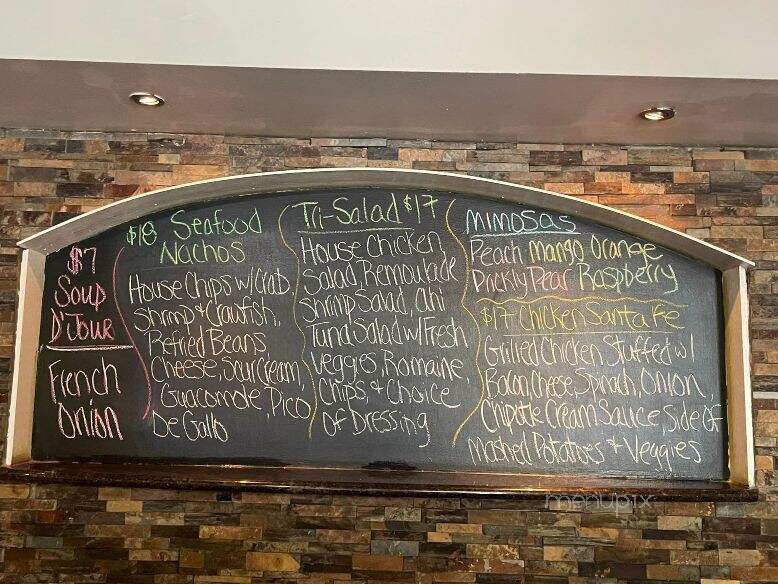 $7
Soup
D'Jour
French
Onion
$18 Seafood
Nachos
House Chips w/ Crab,
Shrimp & Crawfish,
Refried Beans,
Cheese, Sour Cream,
Guacamole, Pico
De Gallo
Tri-Salad $17
House Chicken
Salad, Remoulade
Shrimp Salad, Ahi
Tuna Salad w/ Fresh
Veggies, Romaine,
Chips, & Choice
of Dressing
Mimosas
Peach Mango Orange
Prickly Pear Raspberry
$17 Chicken Santa Fe
Grilled Chicken Stuffed w/
Bacon, Cheese, Spinach, Onion,
Chipotle Cream Sauce, Side of
Mashed Potatoes & Veggies
menupix